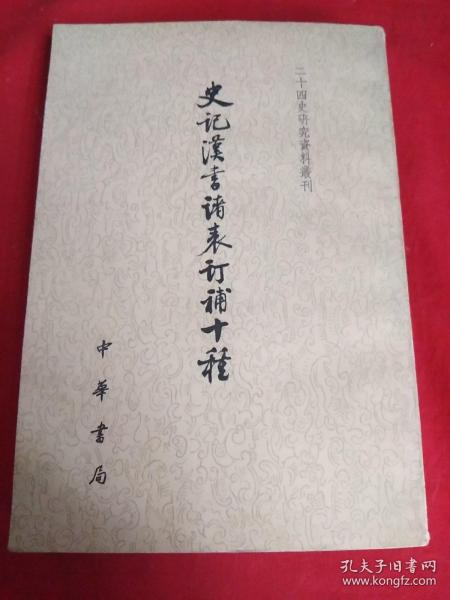 二十四史研究資料叢刊
史記漢書諸表訂補十種
中華書局
孔夫子旧书网
www.kongfz.com